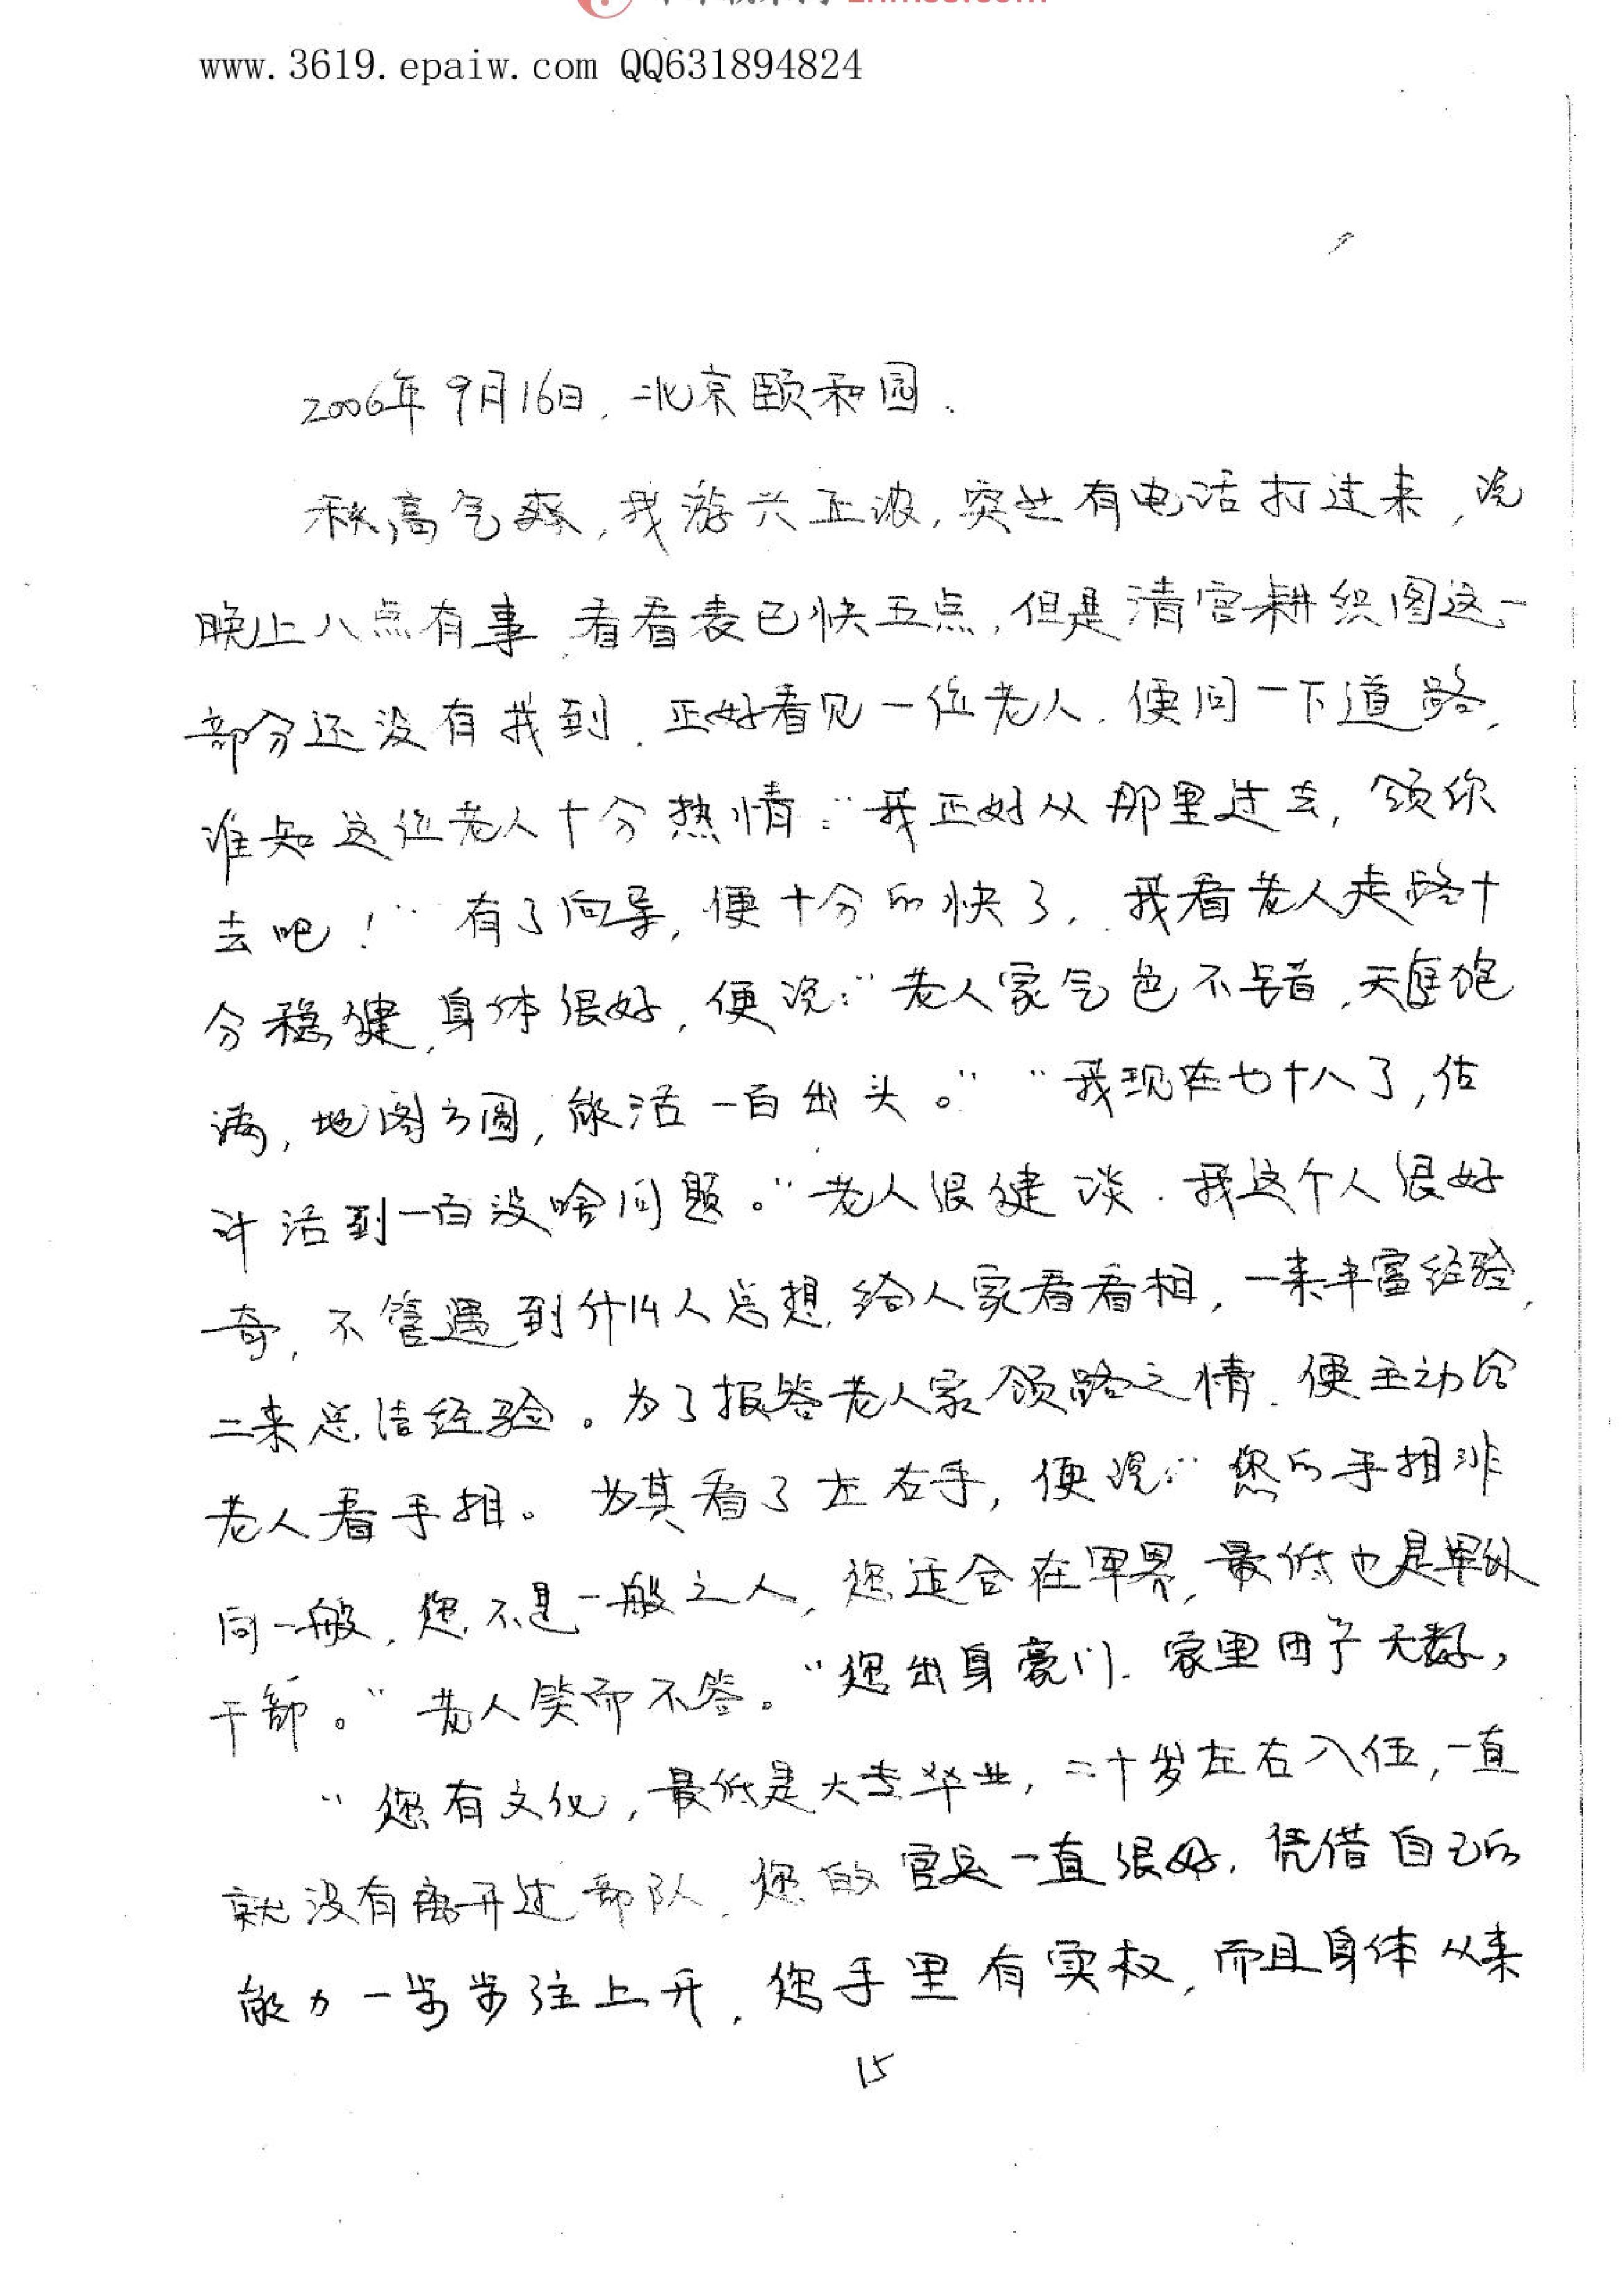 www.3619.epaiw.com QQ631894824
2006年9月16日,北京颐和园.
秋高气爽,我游兴正浓,突然有电话打过来,说
晚上八点有事,看看表已快五点,但是清宫耕织图这一
部分还没有找到.正好看见一位老人,便问一下道路,
谁知这位老人十分热情:“我正好从那里过去,领你
去吧!”有了向导,便十分的快了,我看老人走路十
分稳健,身体很好,便说:“老人家气色不错,天庭饱
满,地阁方圆,能活一百出头。”“我现在七十八了,估
计活到一百没啥问题。”老人很健谈.我这个人很好
奇,不管遇到什么人总想给人家看看相,一来丰富经验,
二来总结经验。为了报答老人家领路之情,便主动给
老人看手相。为其看了左右手,便说:“您的手相非
同一般,您不是一般之人,您适合在军界,最低也是军队
干部。”老人笑而不答。“您出身豪门.家里田产无数,
“您有文化,最低是大专毕业,二十岁左右入伍,一直
就没有离开过部队,您的官运一直很好,凭借自己的
能力一步步往上升,您手里有实权,而且身体从来
15